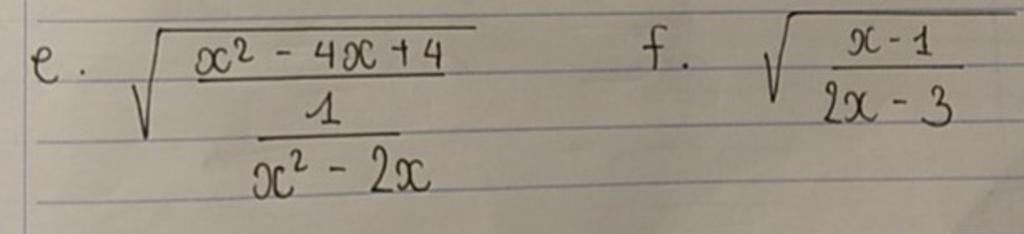 e. √((x² - 4x + 4)/(1/(x² - 2x)))
f. √((x - 1)/(2x - 3))